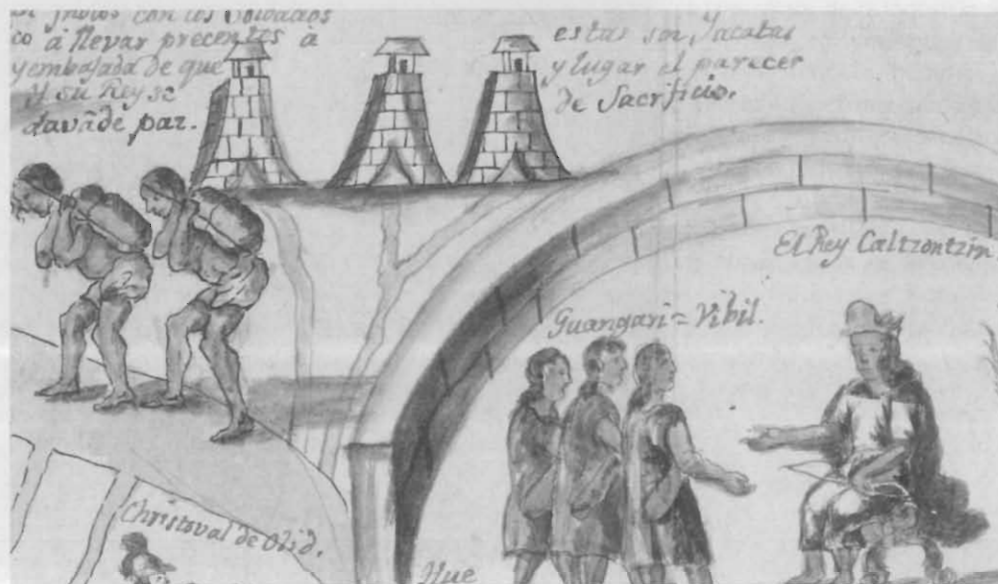 Indios con los Soldados
co á llevar precentes á
y embajada de que
y su Rey se
dava de paz.
estas son Yacatas
y lugar al parecer
de Sacrificio.
El Rey Caltzontzin
Guangari = Vibil.
Christoval de Olid.
Hue